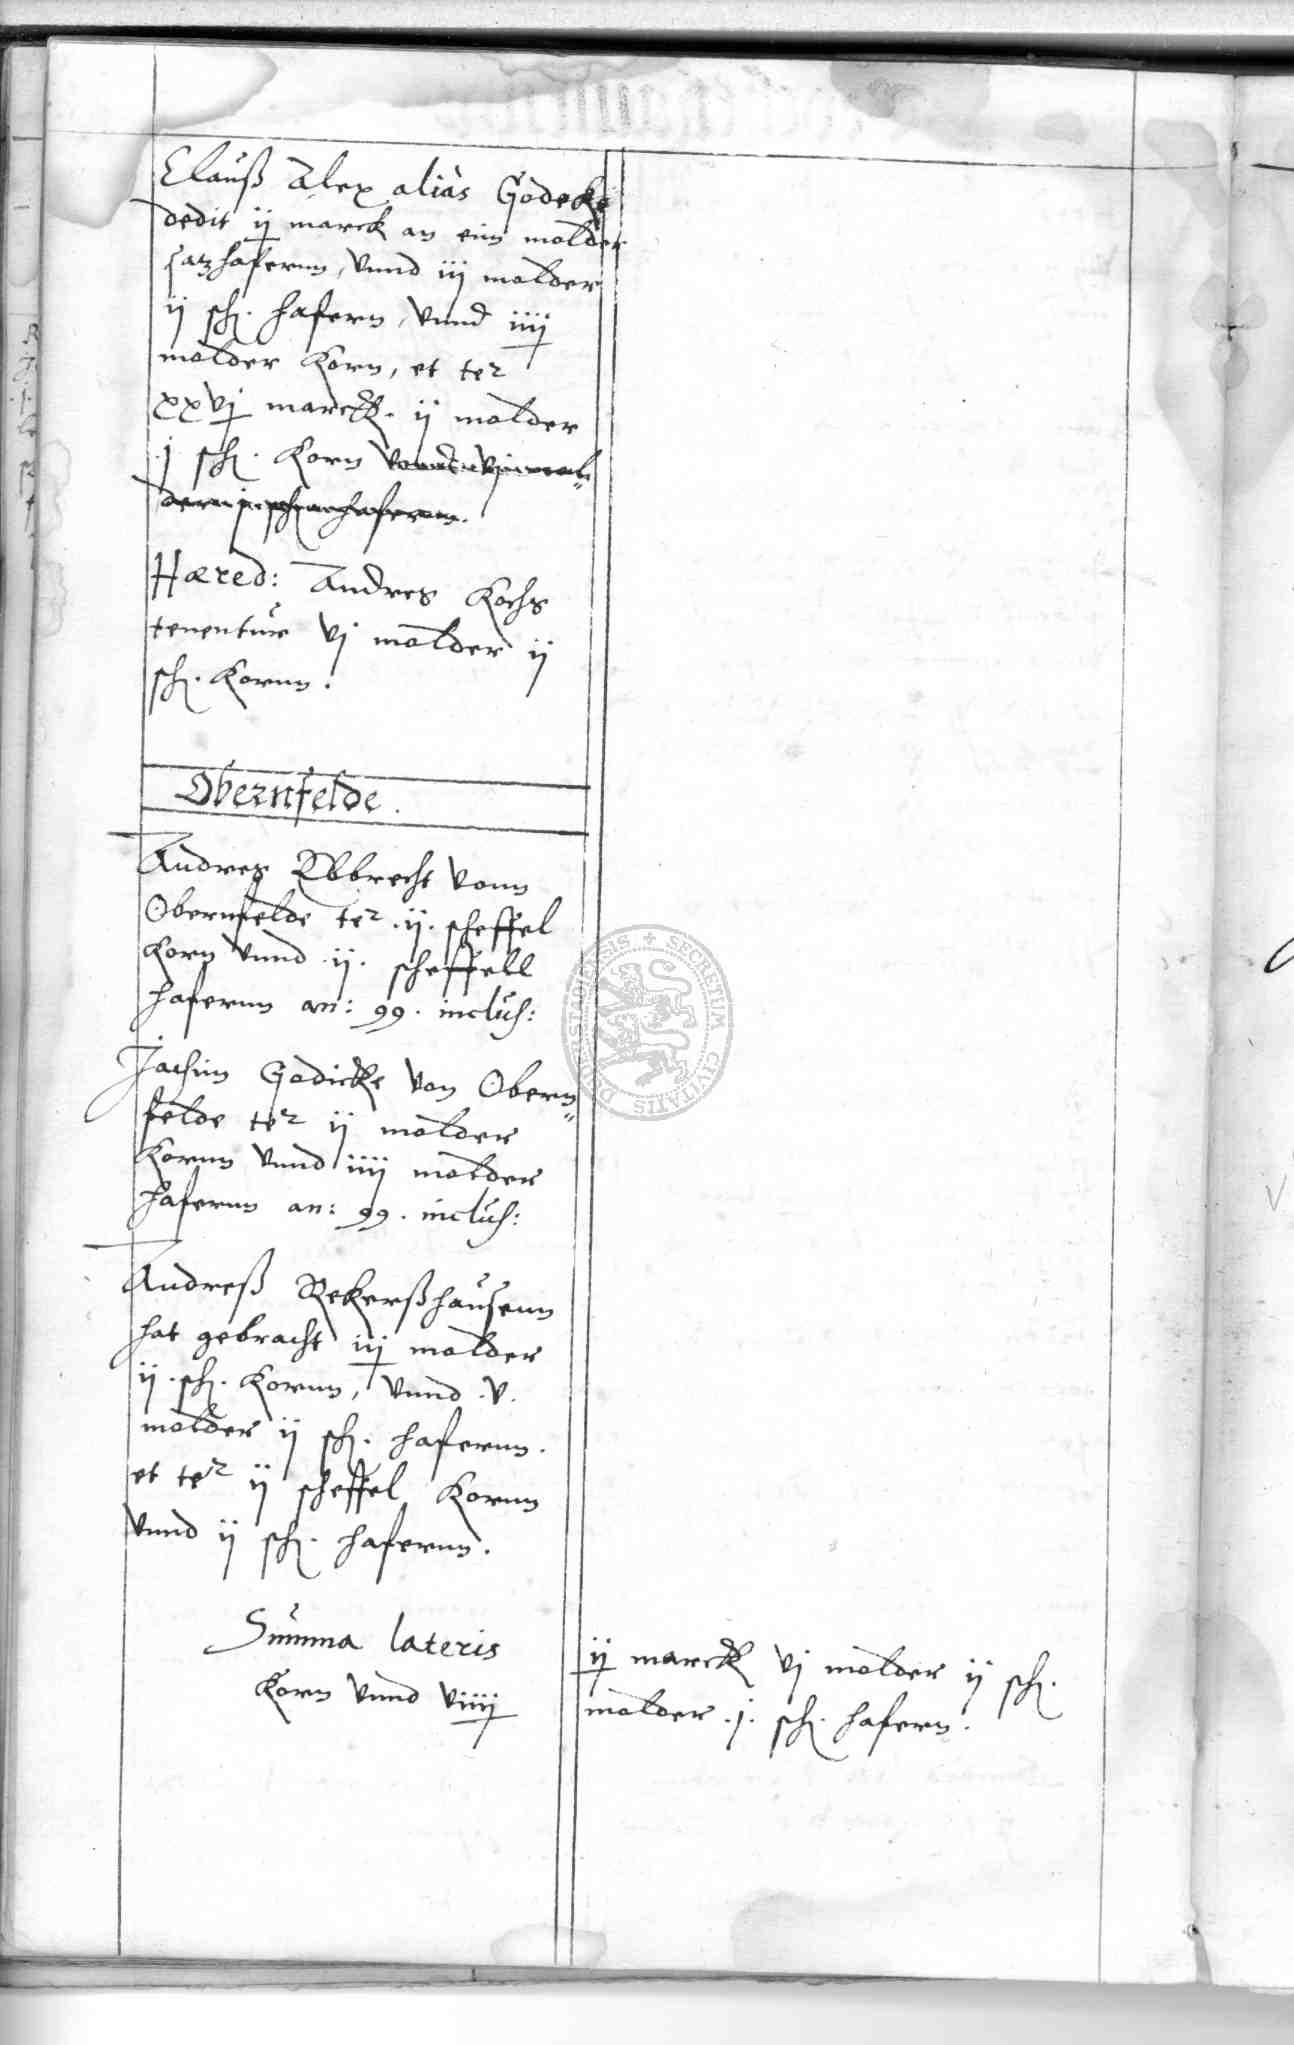 Clauß Alex alias Gödeke
dedit ij marck an eim molder
satzhafernn, vnnd iij molder
ij sch. hafern, vnnd iiij
molder Korn, et ter
xxvj marck. ij molder
j sch. Korn vnnd vj mol=
dern j sch. hafernn.
Hæred: Andres Kochs
tenentur vj molder ij
sch. Kornn.
Obernfelde.
Andres Ebbrecht vonn
Obernfelde ter .ij. scheffel
Korn vnnd .ij. scheffell
hafernn an: 99. inclus:
Jachim Godicke von Obern=
felde ter ij molder
Kornn vnnd iiij molder
hafernn an: 99. inclus:
Andreß Rekerßhausenn
hat gebracht iij molder
ij. sch. Kornn, vnnd .v.
molder ij sch. hafernn.
et ter ij scheffel Kornn
vnnd ij sch. hafernn.
Summa lateris ij marck vj molder ij sch.
Korn vnnd viiij molder .j. sch. hafern.
SECRETUM CIVITATIS DUDERSTADIENSIS